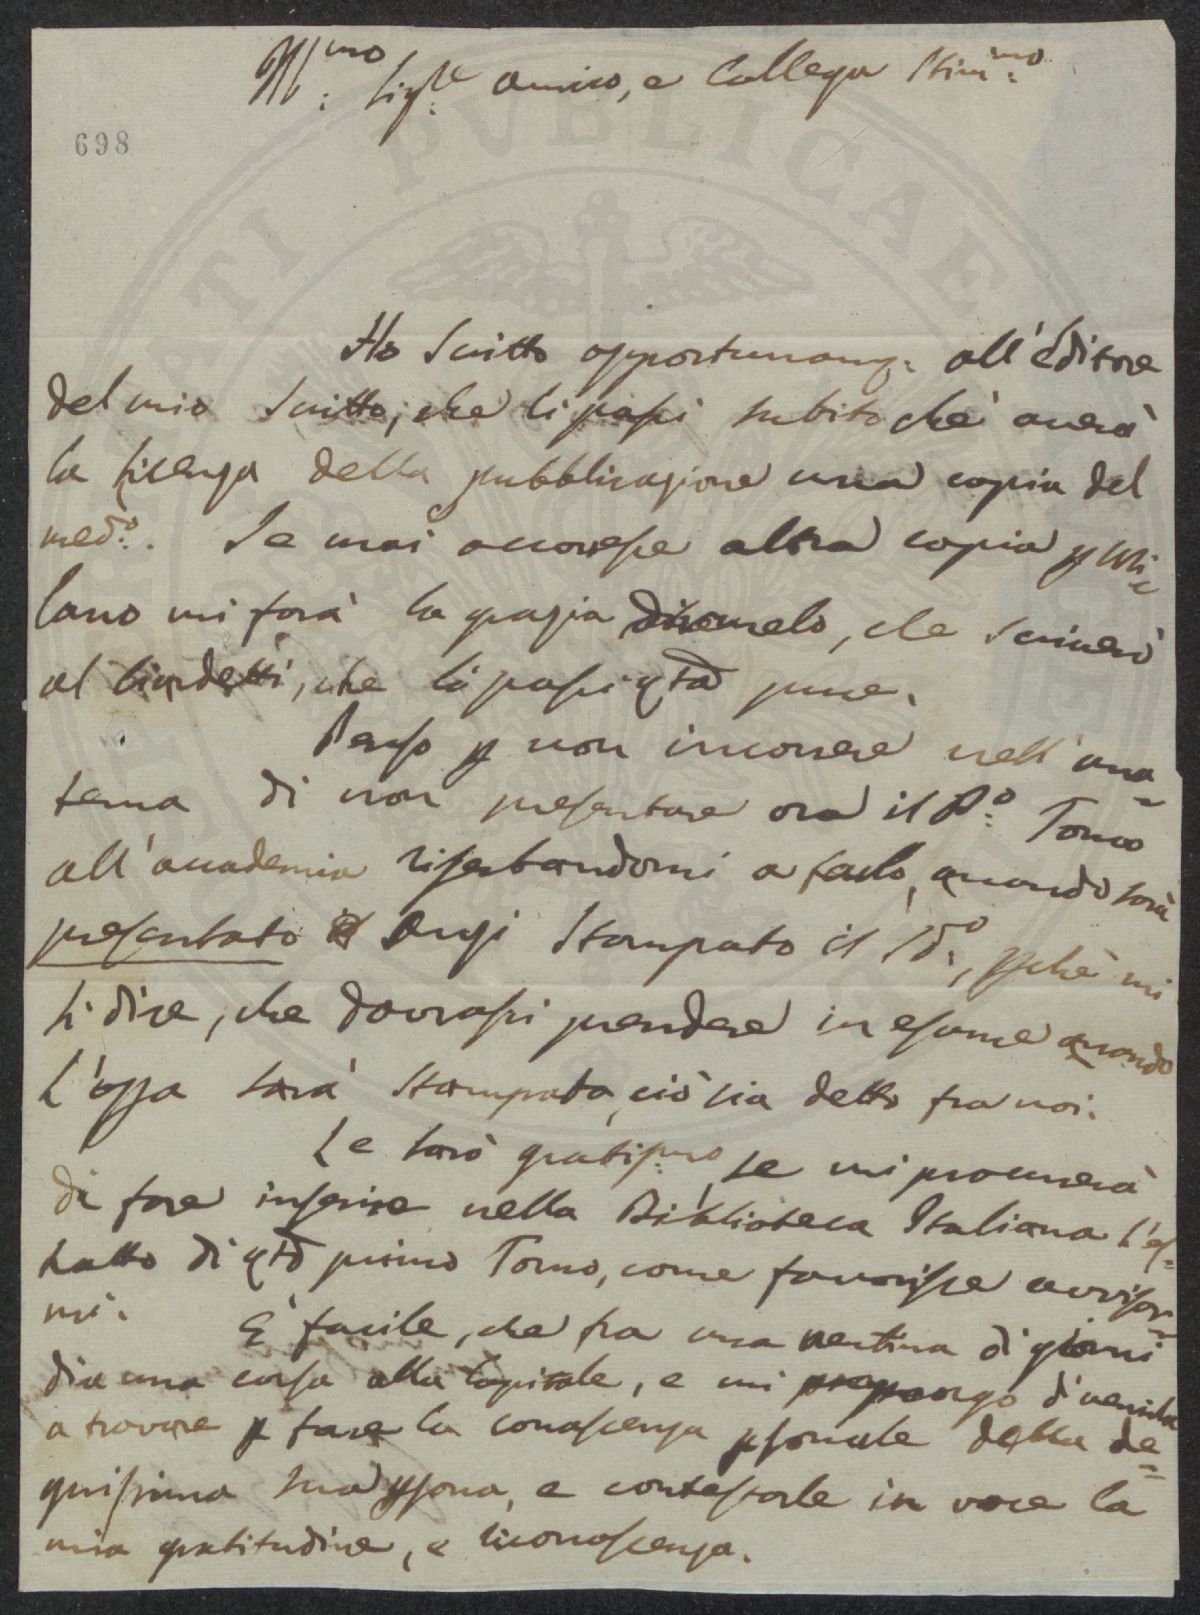 Ill.mo Sig.re amico, e Collega Stim.mo
698
Ho scritto opportunam.e all'Editore
del mio scritto, che li passi subito che averà
la licenza della pubblicazione una copia del
med.o. Se mai accoresse altra copia p Mi=
lano mi farà la grazia diromelo, che scriverò
al , che li passi qta pure.
Penso p non incorrere nell'ana=
tema di non presentare ora il P.o Tomo
all'accademia riserbandomi a farlo, quando sarà
presentato Anzi stampato il 2do, pchè mi
si dice, che dovrassi prendere in esame quando
l'opa sarà stampata, ciò sia detto fra noi.
Le sarò gratiss.mo, se mi procurerà
di fare inserire nella Biblioteca Italiana l'es=
tratto di qto primo Tomo, come favorisce avvisar=
mi.
È facile, che fra una ventina di giorni
dia una corsa alla Capitale, e mi propongo di venirla
a trovare p fare la conoscenza psonale della de=
gnissima sua psona, e contestarle in voce la
mia gratitudine, e riconoscenza.